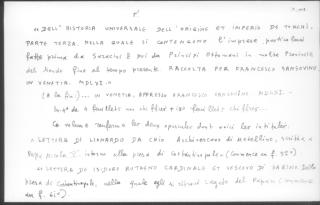 « DELL' HISTORIA UNIVERSALE DELL' ORIGINE ET IMPERIO DE TURCHI,
PARTE TERZA. NELLA QUALE SI CONTENGONO l'imprese particolari
fatte prima da Saracini E poi da Principi Ottomani in molte Provincie
del Mondo fino al tempo presente. RACCOLTA PER FRANCESCO SANSOVINO.
IN VENETIA. MDLXI. »
(à la fin:)... IN VENETIA, APPRESSO FRANCESCO SANSOVINO MDLXI.
4 feuillets non chiffrés + feuillets chiffrés.
Ce volume renferme les deux opuscules dont voici les intitulés:
« LETTERA DI LIONARDO DA CHIO Arcivescovo di Metellino, scritta a
Papa Nicola V. intorno alla presa di Costantinopoli » (Commence au f.
« LETTERA DI ISIDORO RUTHENO CARDINALE ET VESCOVO DI SABINO. Sulla
presa di Costantinopoli, nella quale egli si trovò Legato del Papa » (Commence
au f.